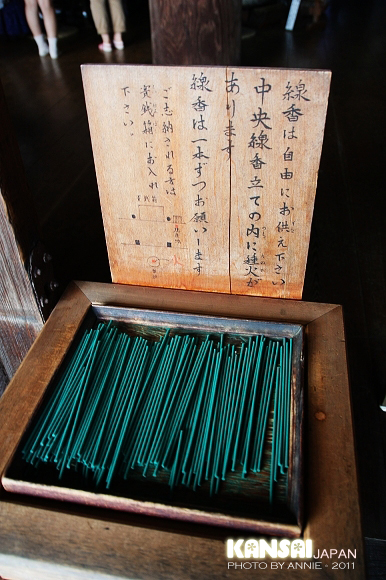 線香は自由にお供え下さい
中央線香立ての内に種火が
あります
線香は一本ずつお願いします
ご志納される方は
賽銭箱にお入れ
下さい。
KANSAI JAPAN
PHOTO BY ANNIE - 2011